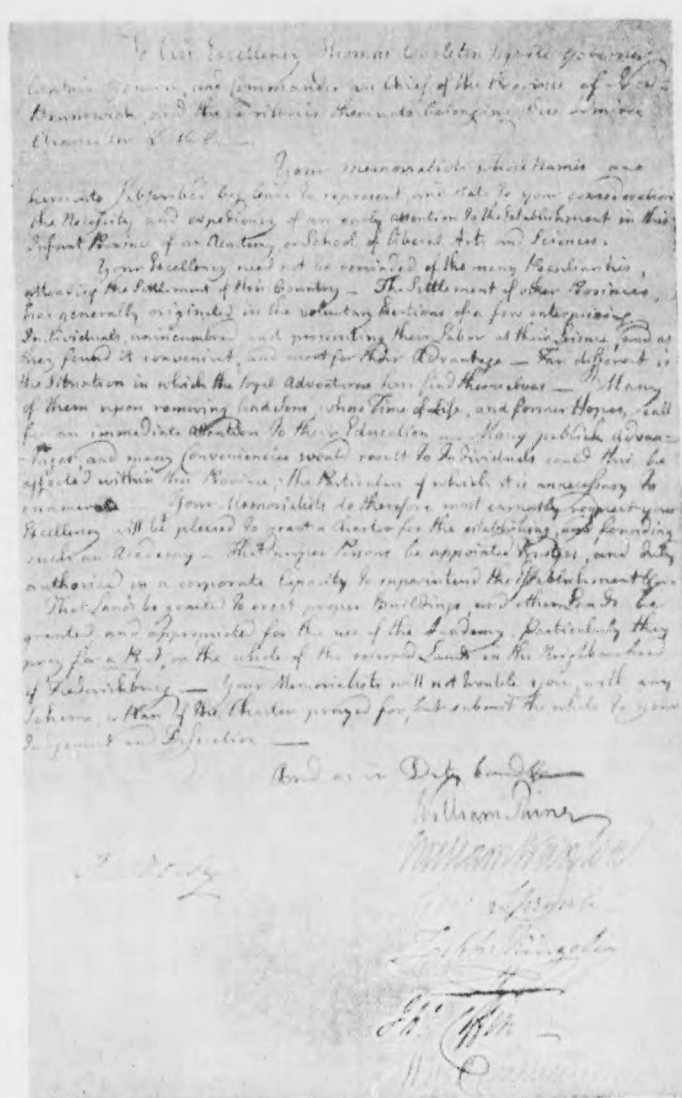 To His Excellency Thomas Carleton Esquire Governor
Captain General, and Commander in Chief of the Province of New-
Brunswick, and the Territories thereunto belonging,
Chancellor &c &c —
Your Memorialists whose Names are
hereunto Subscribed beg leave to represent, and state to your consideration
the Necessity and expediency of an early attention to the Establishment in this
Infant Province of an Academy or School of liberal Arts and Sciences.
Your Excellency need not be reminded of the many Peculiarities,
attending the Settlement of this Country — The Settlement of other Provinces,
has generally originated in the voluntary Exertions of a few enterprising
Individuals, unincumbred and prosecuting their Labor at their Leisure, and as
they found it convenient, and most for their Advantage — Far different is
the Situation in which the loyal Adventurers here find themselves — Many
of them upon removing had Sons, whose Time of Life, and former Hopes, call
for an immediate Attention to their Education — Many publick advan-
tages, and many conveniencies would result to Individuals could this be
affected within this Province, the Particulars of which it is unnecessary to
enumerate Your Memorialists do therefore most earnestly request your
Excellency will be pleased to grant a Charter for the establishing, and founding
such an Academy — That proper Persons be appointed Trustees, and duly
authorised in a corporate Capacity to superintend the Establishment
That Lands be granted to erect proper Buildings, and other Lands be
granted and appropriated for the use of the Academy. Particularly they
pray for a Part, or the whole of the reserved Lands in the Neighbourhood
of Frederickburg — Your Memorialists will not trouble you, with any
Scheme, or Plan of the Charter prayed for, but submit the whole to your
Judgement and Discretion —
And as in Duty bound &c
William Paine
William Wanton
Zeph: Kingsley
Jn: Coffin